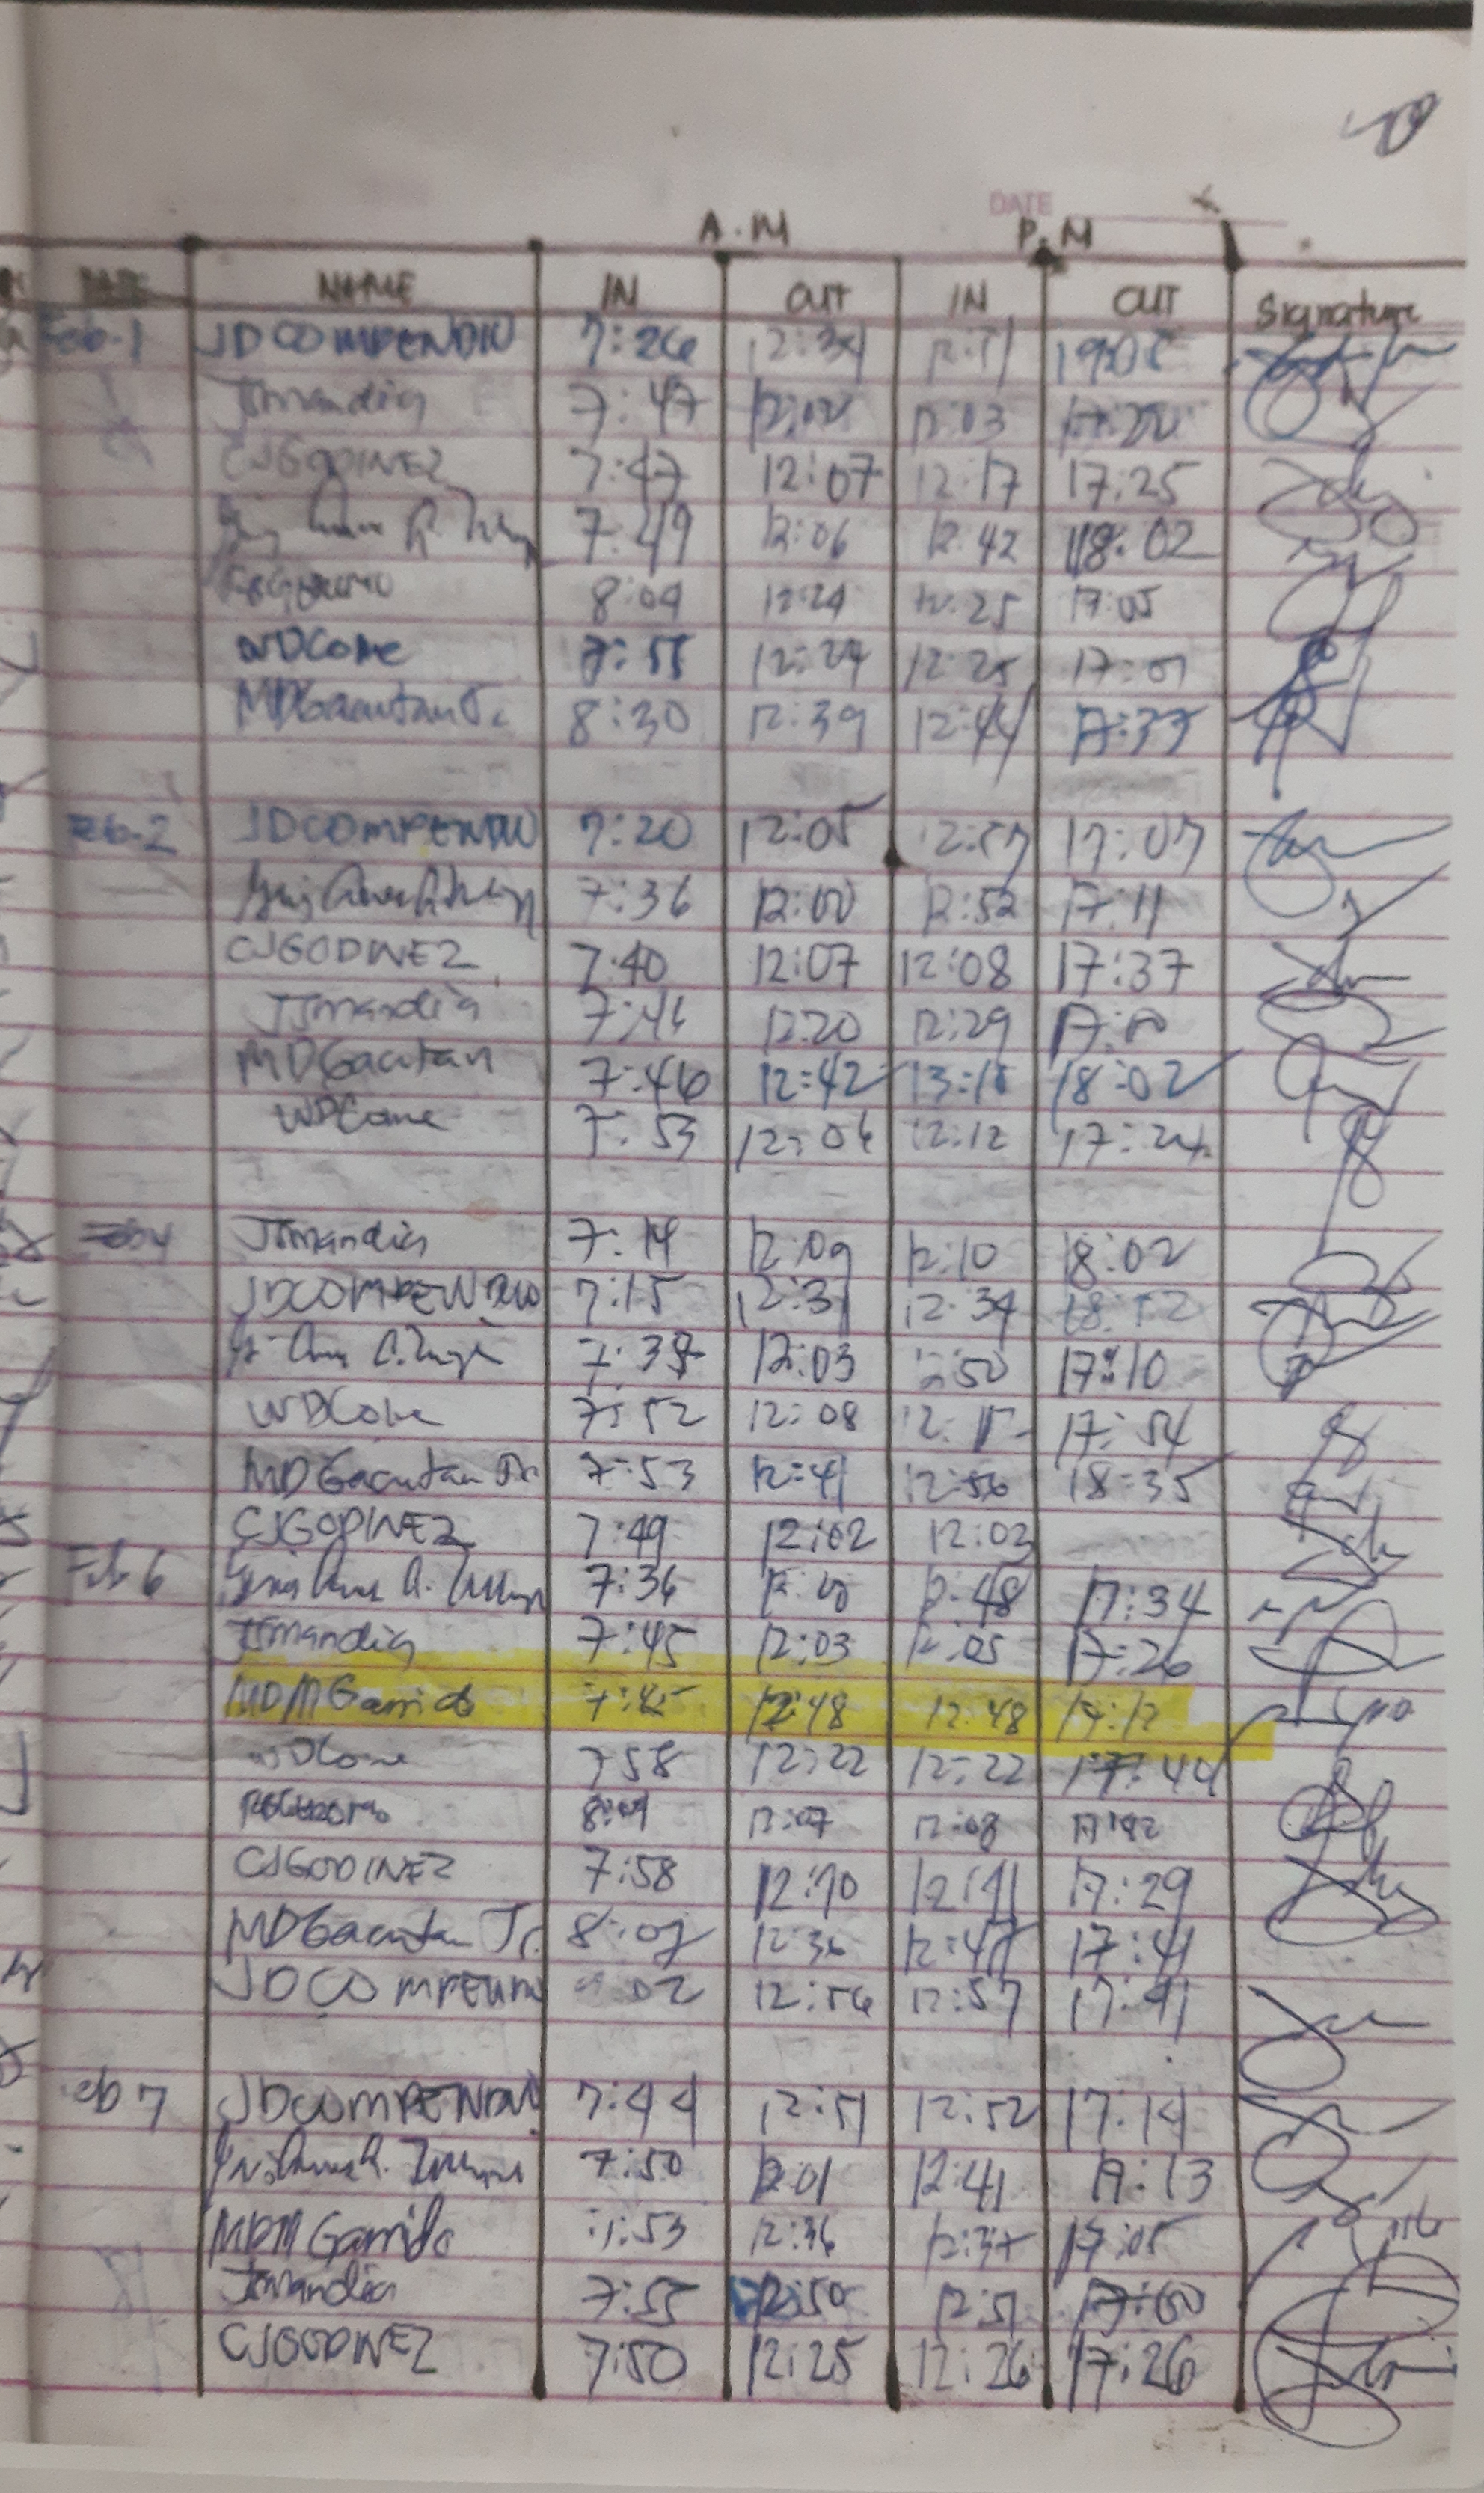 DATE
A.M P.M
DATE NAME IN OUT IN OUT Signature
Feb-1 JDCOMPENDIO 7:26 12:34 12:51 19:05
JJmandia 7:47 12:02 12:03 17:22
CJGODINEZ 7:47 12:07 12:17 17:25
7:49 12:06 12:42 18:02
8:09 12:24 12:25 17:05
WDCone 7:55 12:24 12:25 17:01
MDGacutan Jr. 8:30 12:39 12:44 17:33
Feb-2 JDCOMPENDIO 7:20 12:05 12:57 17:07
7:36 12:00 12:52 17:11
CJGODINEZ 7:40 12:07 12:08 17:37
JJmandia 7:46 12:20 12:29
MDGacutan 7:46 12:42 13:15 18:02
WDCone 7:53 12:06 12:12 17:24
JJmandia 7:14 12:09 12:10 18:02
JDCOMPENDIO 7:15 12:31 12:34 18:52
12:03 12:50 17:10
WDCone 7:52 12:08 17:54
MDGacutan Jr. 7:53 12:41 12:56 18:35
CJGODINEZ 7:49 12:02 12:03
Feb 6 7:36 12:00 12:48 17:34
JJmandia 7:45 12:03 12:05 17:26
MDMGarrido 7:45 12:48 12:48 17:12
WDCone 7:58 12:22 12:22 17:44
8:09 12:07 12:08 17:42
CJGODINEZ 7:58 12:10 12:11 17:29
MDGacutan Jr. 12:36 12:47 17:41
JDCOMPENDIO 12:56 12:57 17:41
Feb 7 JDCOMPENDIO 7:44 12:51 12:52 17:14
7:50 12:01 12:41 17:13
MDMGarrido 7:53 12:36 12:37 17:05
JJmandia 7:55 12:50 12:51
CJGODINEZ 7:50 12:25 12:26 17:26